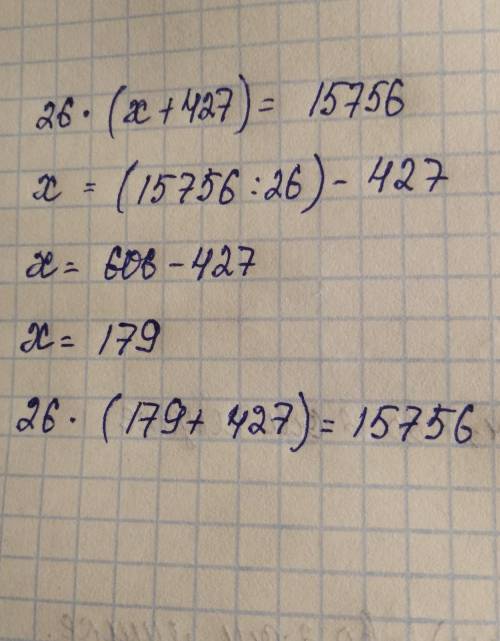 26 · (x + 427) = 15756
x = (15756 : 26) - 427
x = 606 - 427
x = 179
26 · (179 + 427) = 15756